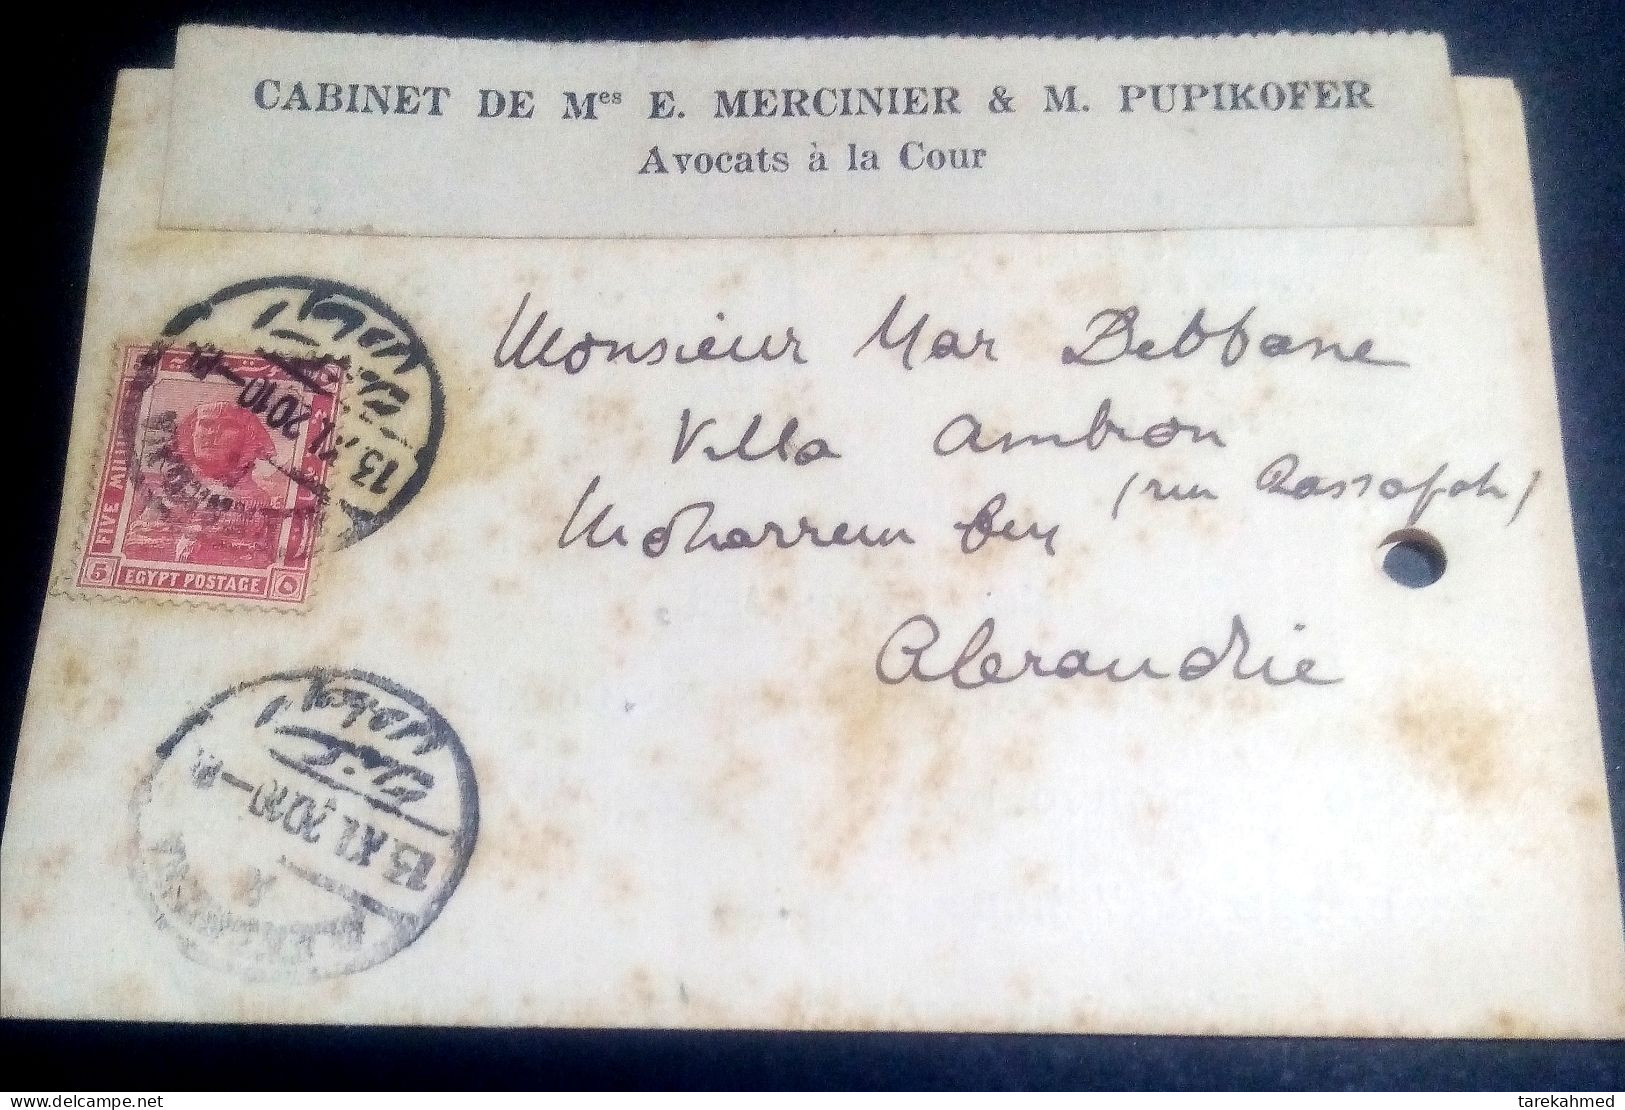 CABINET DE Mes E. MERCINIER & M. PUPIKOFER
Avocats à la Cour
Monsieur Mar Debbane
Villa Ambron
(rue Rassafah)
Moharrem bey
Alexandrie
FIVE MILL
5 EGYPT POSTAGE ٥
13. XI. 20 10-
13. XI. 20 10-
tarekahmed
delcampe.net